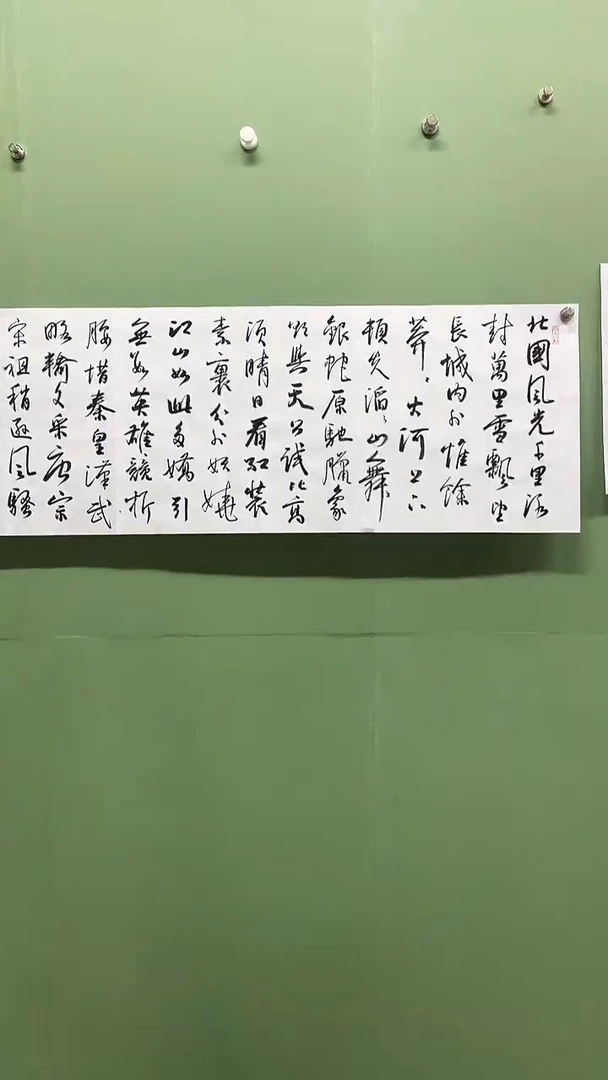 北國風光千里冰
封萬里雪飄望
長城内外惟餘
莽〻大河上下
頓失滔〻山舞
銀蛇原馳臘象
欲與天公試比高
須晴日看紅裝
素裹分外妖嬈
江山如此多嬌引
無數英雄競折
腰惜秦皇漢武
略輸文采唐宗
宋祖稍遜風騷